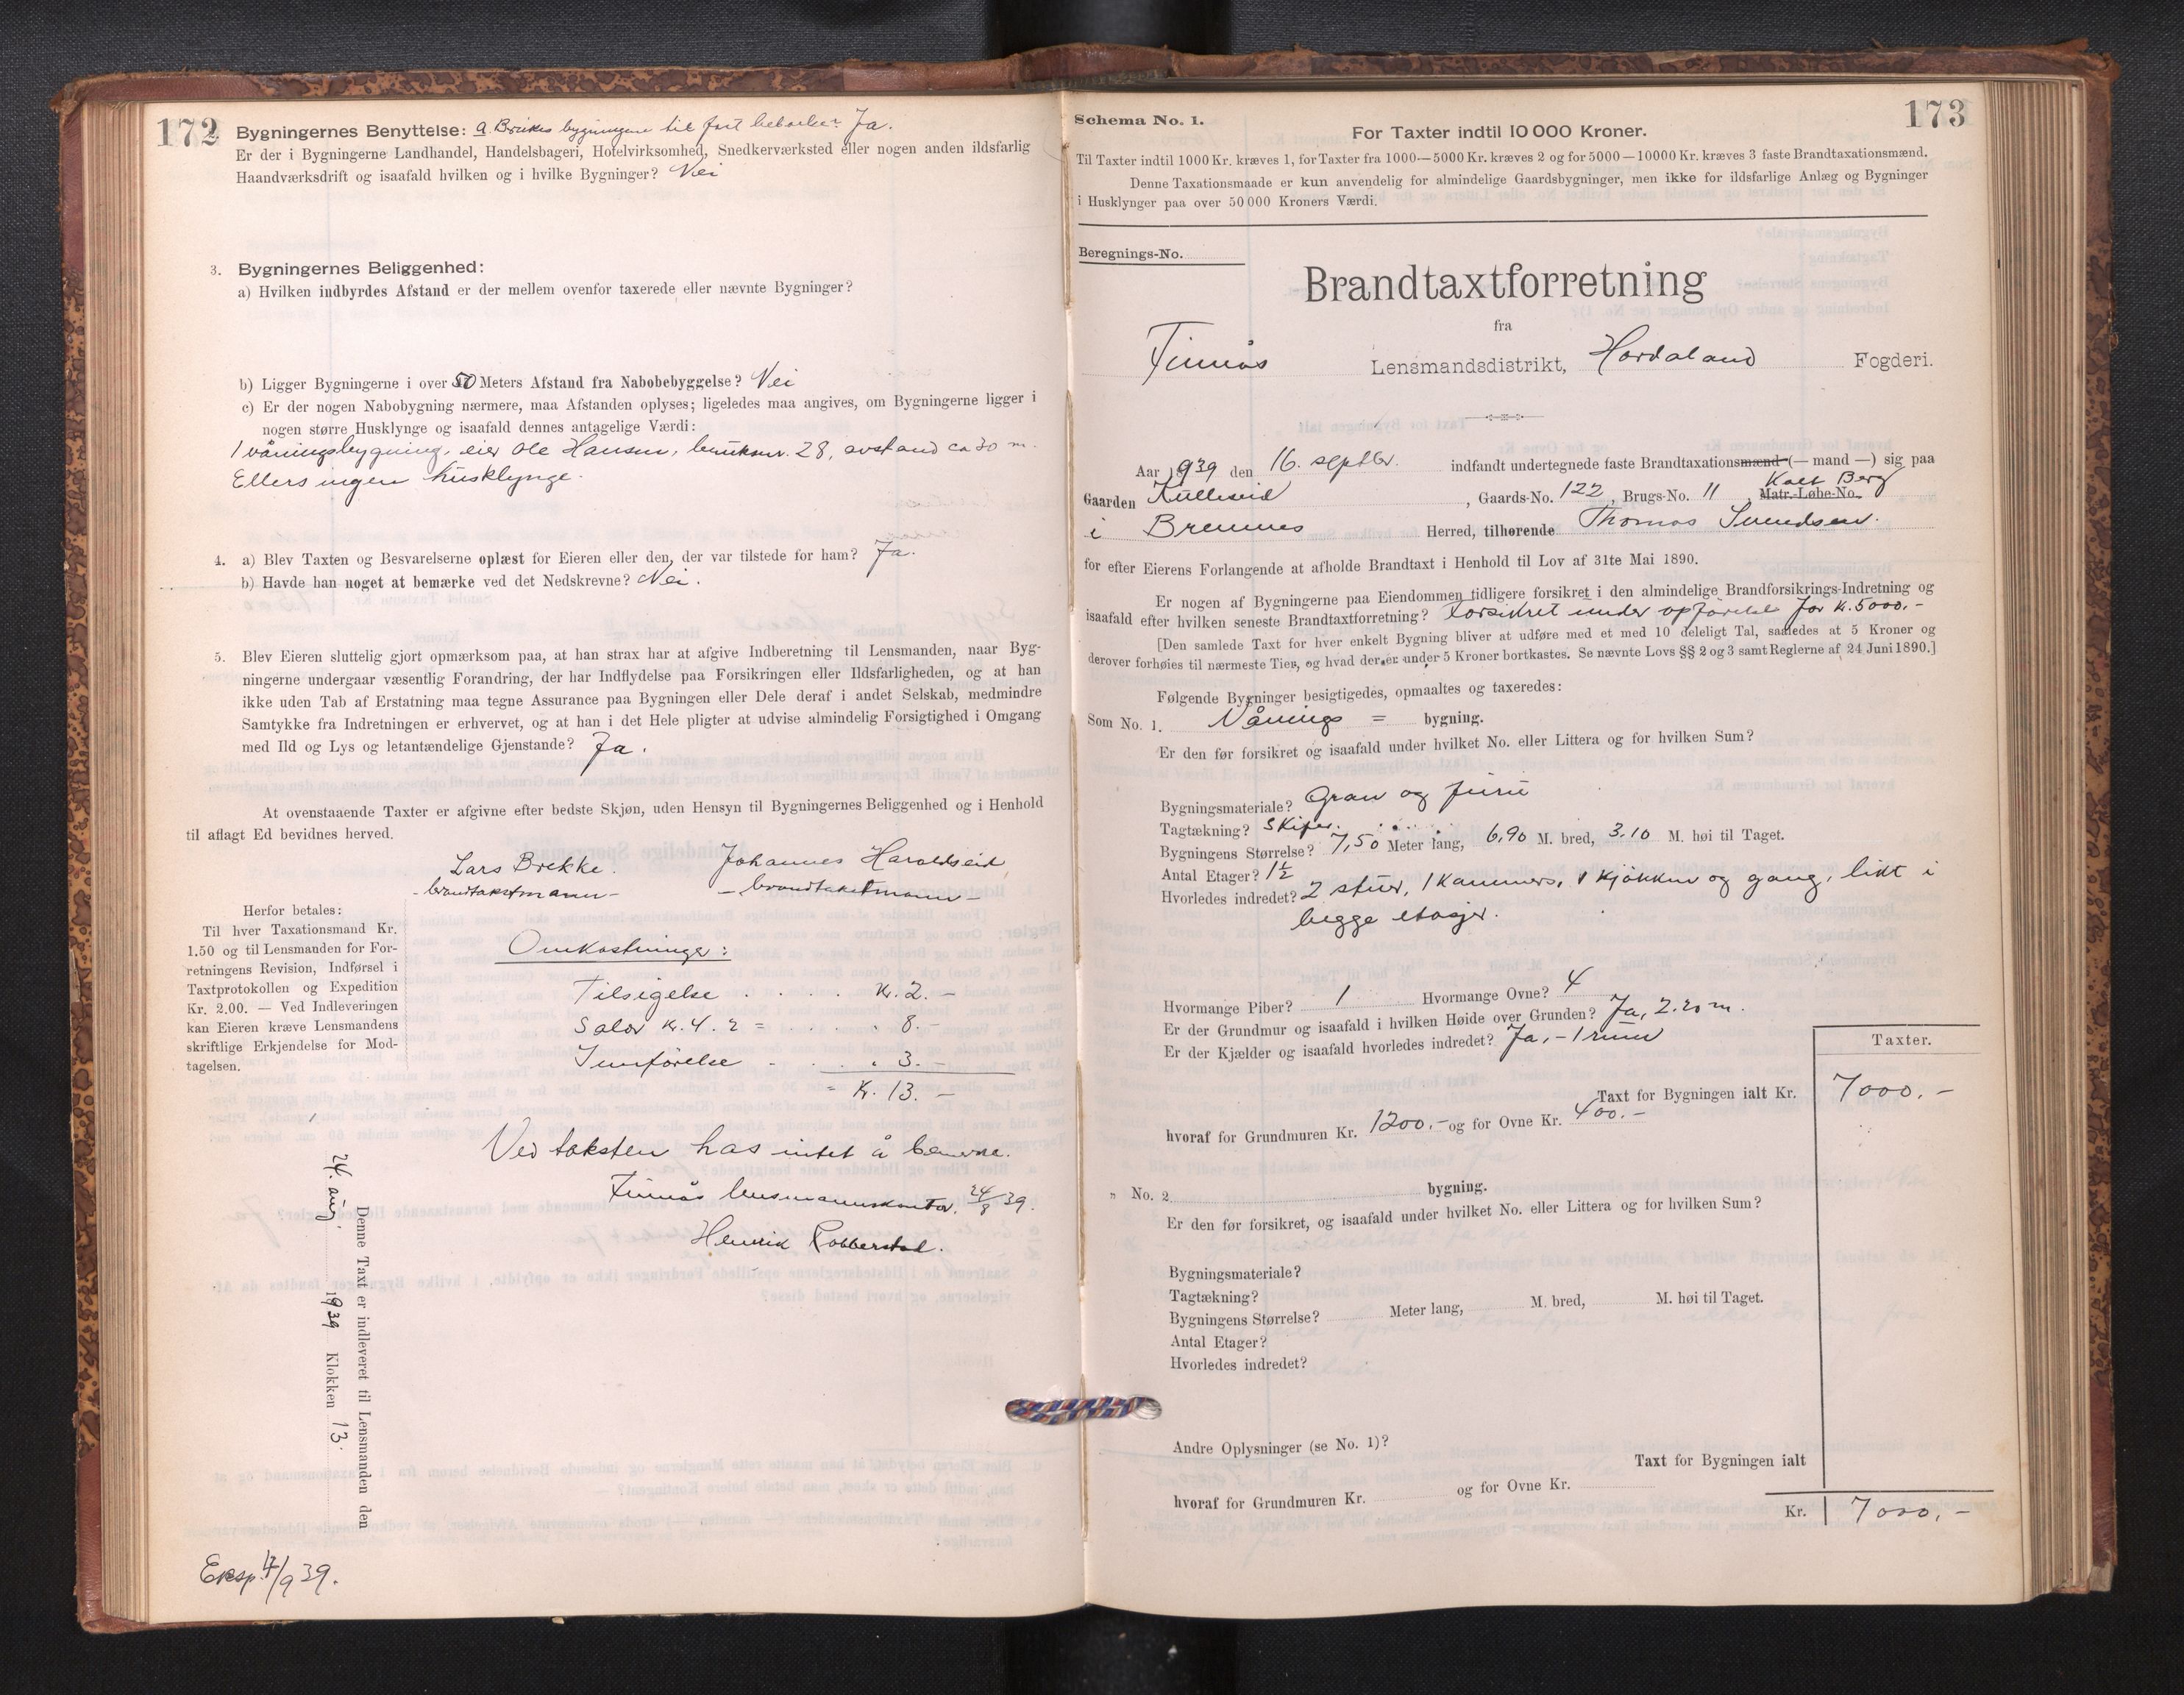 172 Bygningernes Benyttelse: a. Brukes bygningene til fast beboelse? Ja.
Er der i Bygningerne Landhandel, Handelsbageri, Hotelvirksomhed, Snedkerværksted eller nogen anden ildsfarlig
Haandværksdrift og isaafald hvilken og i hvilke Bygninger? Nei
3. Bygningernes Beliggenhed:
a) Hvilken indbyrdes Afstand er der mellem ovenfor taxerede eller nævnte Bygninger?
b) Ligger Bygningerne i over 50 Meters Afstand fra Nabobebyggelse? Nei
c) Er der nogen Nabobygning nærmere, maa Afstanden oplyses; ligeledes maa angives, om Bygningerne ligger i
nogen større Husklynge og isaafald dennes antagelige Værdi:
1 våningsbygning, eier Ole Hansen, bruksnr. 28, avstand ca 30 m.
Ellers ingen husklynge.
4. a) Blev Taxten og Besvarelserne oplæst for Eieren eller den, der var tilstede for ham? Ja.
b) Havde han noget at bemærke ved det Nedskrevne? Nei.
5. Blev Eieren sluttelig gjort opmærksom paa, at han strax har at afgive Indberetning til Lensmanden, naar Byg-
ningerne undergaar væsentlig Forandring, der har Indflydelse paa Forsikringen eller Ildsfarligheden, og at han
ikke uden Tab af Erstatning maa tegne Assurance paa Bygningen eller Dele deraf i andet Selskab, medmindre
Samtykke fra Indretningen er erhvervet, og at han i det Hele pligter at udvise almindelig Forsigtighed i Omgang
med Ild og Lys og letantændelige Gjenstande? Ja.
At ovenstaaende Taxter er afgivne efter bedste Skjøn, uden Hensyn til Bygningernes Beliggenhed og i Henhold
til aflagt Ed bevidnes herved.
Lars Brekke. Johannes Haraldseid
- brandtakstmann - - brandtakstmann -
Herfor betales:
Til hver Taxationsmand Kr.
1.50 og til Lensmanden for For-
retningens Revision, Indførsel i
Taxtprotokollen og Expedition
Kr. 2.00. — Ved Indleveringen
kan Eieren kræve Lensmandens
skriftlige Erkjendelse for Mod-
tagelsen.
Omkostninger:
Tilsigelse . . . . Kr. 2. -
Salær Kr. 4. 2 = . . . . 8. -
Innførelse . . . . 3. -
= Kr. 13. -
Ved taksten has intet å bemerke.
Finnås lensmannskontor, 24/8 39.
Henrik Robberstad.
Denne Taxt er indleveret til Lensmanden den
24. aug. 1939 Klokken 13.
Eksp. 17/9 39.
Schema No. 1. 173
For Taxter indtil 10 000 Kroner.
Til Taxter indtil 1000 Kr. kræves 1, for Taxter fra 1000—5000 Kr. kræves 2 og for 5000—10000 Kr. kræves 3 faste Brandtaxationsmænd.
Denne Taxationsmaade er kun anvendelig for almindelige Gaardsbygninger, men ikke for ildsfarlige Anlæg og Bygninger
i Husklynger paa over 50 000 Kroners Værdi.
Beregnings-No.
Brandtaxtforretning
fra
Finnås Lensmandsdistrikt, Hordaland Fogderi.
Aar 1939 den 16. septbr. indfandt undertegnede faste Brandtaxationsmænd (— mand —) sig paa
Gaarden Kulleseid, Gaards-No. 122, Brugs-No. 11, Matr.-Løbe-No. Kalt Berg
i Bremnes Herred, tilhørende Thomas Svendsen.
for efter Eierens Forlangende at afholde Brandtaxt i Henhold til Lov af 31te Mai 1890.
Er nogen af Bygningerne paa Eiendommen tidligere forsikret i den almindelige Brandforsikrings-Indretning og
isaafald efter hvilken seneste Brandtaxtforretning? Forsikret under opførelse for k. 5000.-
[Den samlede Taxt for hver enkelt Bygning bliver at udføre med et med 10 deleligt Tal, saaledes at 5 Kroner og
derover forhøies til nærmeste Tier, og hvad der er under 5 Kroner bortkastes. Se nævnte Lovs §§ 2 og 3 samt Reglerne af 24 Juni 1890.]
Følgende Bygninger besigtigedes, opmaaltes og taxeredes:
Som No. 1. Vånings = bygning.
Er den før forsikret og isaafald under hvilket No. eller Littera og for hvilken Sum?
Bygningsmateriale? Gran og furu
Tagtækning? Skifer.
Bygningens Størrelse? 7,50 Meter lang, 6,90 M. bred, 3.10 M. høi til Taget.
Antal Etager? 1½
Hvorledes indredet? 2 stuer, 1 kammers, 1 kjøkken og gang, likt i
begge etasjer.
Hvormange Piber? 1 Hvormange Ovne? 4
Er der Grundmur og isaafald i hvilken Høide over Grunden? Ja, 2.20 m.
Er der Kjælder og isaafald hvorledes indredet? Ja, - 1 rum
Taxter.
Taxt for Bygningen ialt Kr. 7000.-
hvoraf for Grundmuren Kr. 1200.- og for Ovne Kr. 400.-
„ No. 2 bygning.
Er den før forsikret, og isaafald under hvilket No. eller Littera og for hvilken Sum?
Bygningsmateriale?
Tagtækning?
Bygningens Størrelse? Meter lang, M. bred, M. høi til Taget.
Antal Etager?
Hvorledes indredet?
Andre Oplysninger (se No. 1)?
Taxt for Bygningen ialt
hvoraf for Grundmuren Kr. og for Ovne Kr.
Kr. 7000.-